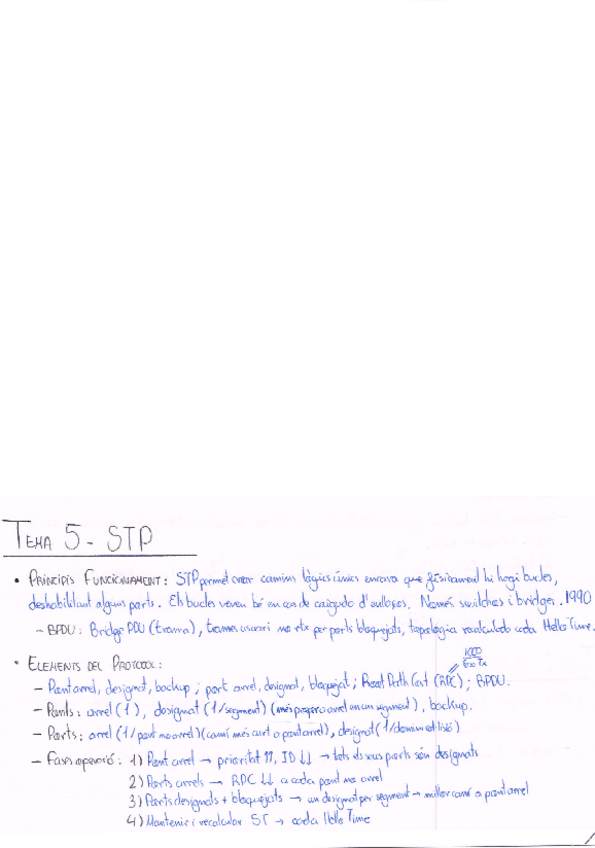 TEMA 5 - STP
• PRINCIPIS FUNCIONAMENT: STP permet crear camins lògics únics encara que físicament hi hagi bucles,
deshabilitant alguns ports. Els bucles venen bé en cas de caiguda d'enllaços. Només switches i bridges. 1990
- BPDU: Bridge PDU (trama), trames usuari no rtx per ports bloquejats, topologia recalculada cada Hello Time.
• ELEMENTS DEL PROTOCOL:
1000
- Pont arrel, designat, backup; port arrel, designat, bloquejat; Root Path Cost (RPC); BPDU.
- Ponts: arrel (1), designat (1/segment) (més proper a arrel en un segment), backup.
- Ports: arrel (1/pont no arrel) (camí més curt a pont arrel), designat (1/domini col·lisió)
- Fases operació: 1) Pont arrel → prioritat ↑↑, ID ↓↓ → tots els seus ports són designats
2) Ports arrels → RPC ↓↓ a cada pont no arrel
3) Ports designats + bloquejats → un designat per segment → millor camí a pont arrel
4) Mantenir i recalcular ST → cada Hello Time